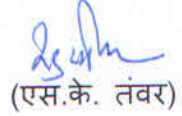 (एस.के. तंवर)